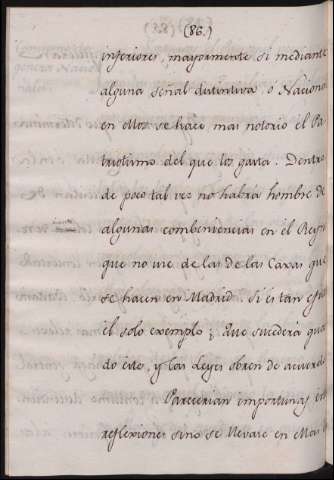 (86.)
inferiores, mayormente si mediante
alguna señal distintiva o Nacional
en ellos se hace mas notorio el Pa-
triotismo del que los gasta. Dentro
de poco tal vez no habrá hombre de
algunas combeniencias en el Reyno
que no use de las de las Caxas que
se hacen en Madrid. Si es tan
el solo exemplo; Que sucederá quan-
do esto, y las Leyes obren de acuerdo
Parecerian importunas
reflexiones sino se llevase en